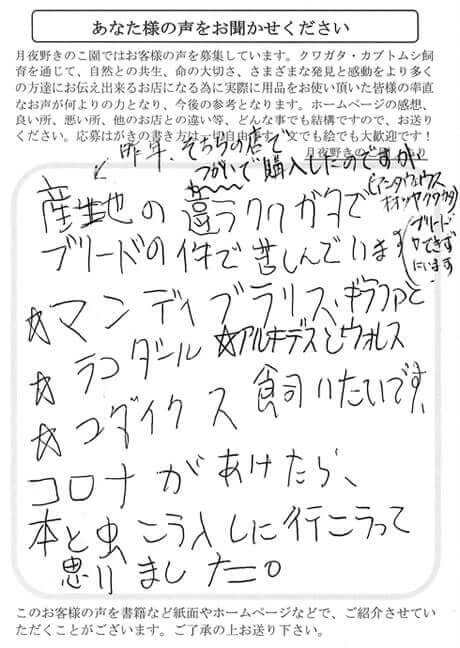 あなた様の声をお聞かせください
月夜野きのこ園ではお客様の声を募集しています。クワガタ・カブトムシ飼
育を通じて、自然との共生、命の大切さ、さまざまな発見と感動をより多く
の方達にお伝え出来るお店になる為に実際に用品をお使い頂いた皆様の率直
なお声が何よりの力となり、今後の参考となります。ホームページの感想、
良い所、悪い所、他のお店との違い等、どんな事でも結構ですので、お送り
ください。応募はがきの書き方は一切自由です。文でも絵でも大歓迎です！
月夜野きのこ園 より
昨年、そちらの店で
つがいで購入したのですが
産地の違うクワガタで
(アンタエウス
オオクワクワガタ)
ブリードの件で苦しんでいます
(ブリード
できず
にいます
☆マンディブラリス、ギラファと
☆ラコダール ☆アルキデスとウォレス
☆コダイクス 飼いたいです、
コロナがあけたら、
本と虫こう入しに行こうって
思いました。
このお客様の声を書籍など紙面やホームページなどで、ご紹介させてい
ただくことがございます。ご了承の上お送り下さい。